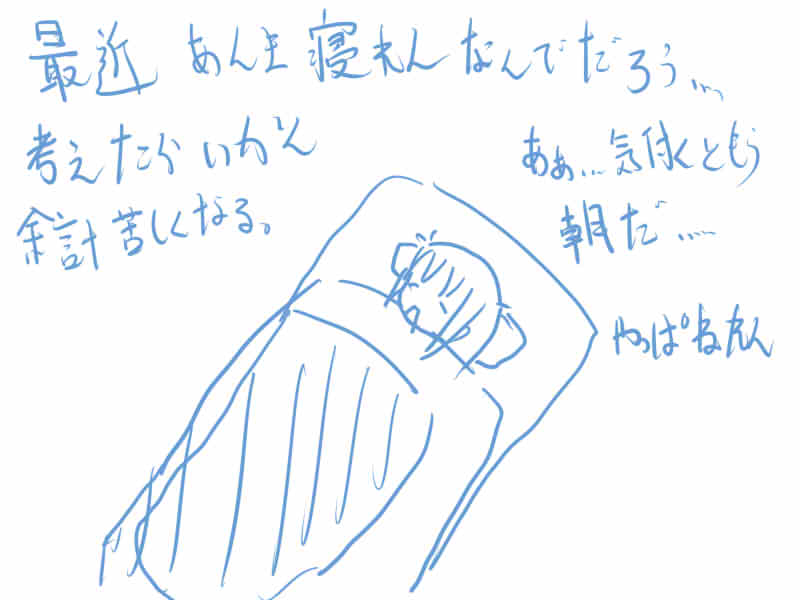 最近 あんま 寝れん なんでだろう...
考えたらいかん
余計苦しくなる。
あぁ...気付くともう
朝だ....
やっぱねれん